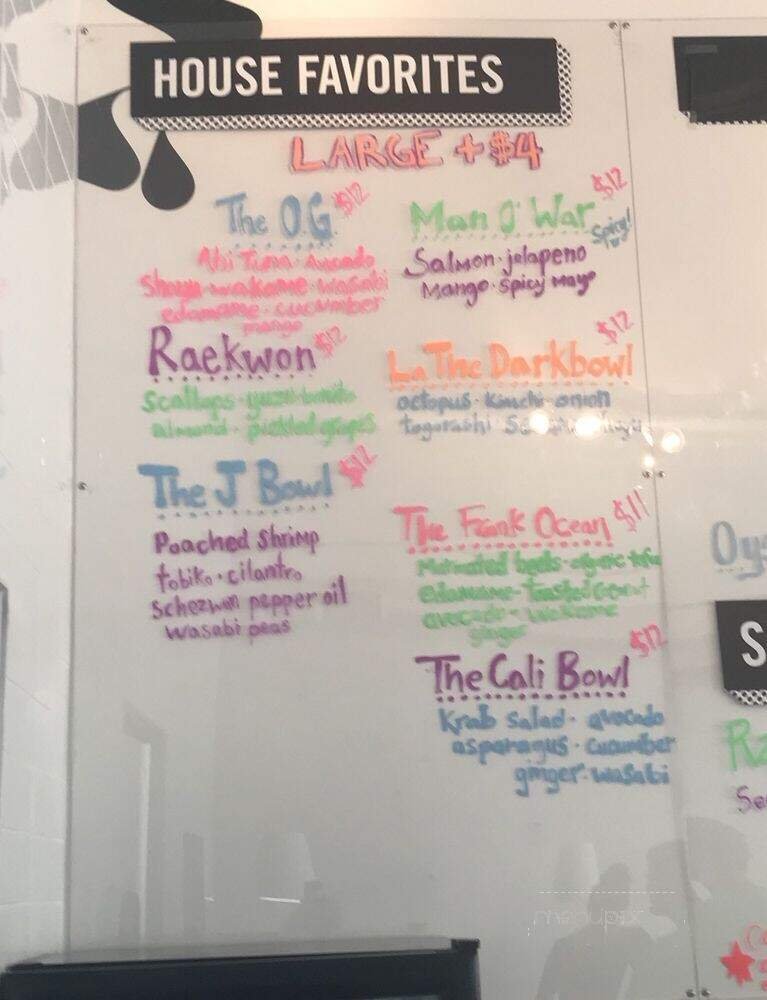 HOUSE FAVORITES
LARGE + $4
The O.G. $12
Ahi Tuna · Avocado
Shoyu · wakame · wasabi
edamame · cucumber
mango
Raekwon $12
Scallops · yuzu · bonito
almond · pickled grapes
The J Bowl $12
Poached Shrimp
tobiko · cilantro
Schezwan pepper oil
wasabi peas
Man O' War $12
Spicy!
Salmon · jalapeno
Mango · Spicy mayo
La The Darkbowl $12
octopus · kimchi · onion
togarashi
The Frank Ocean $11
Marinated beets · organic tofu
edamame · toasted
avocado · wakame
ginger
The Cali Bowl $12
Krab Salad · avocado
asparagus · cucumber
ginger · wasabi
Oys
S
Rz